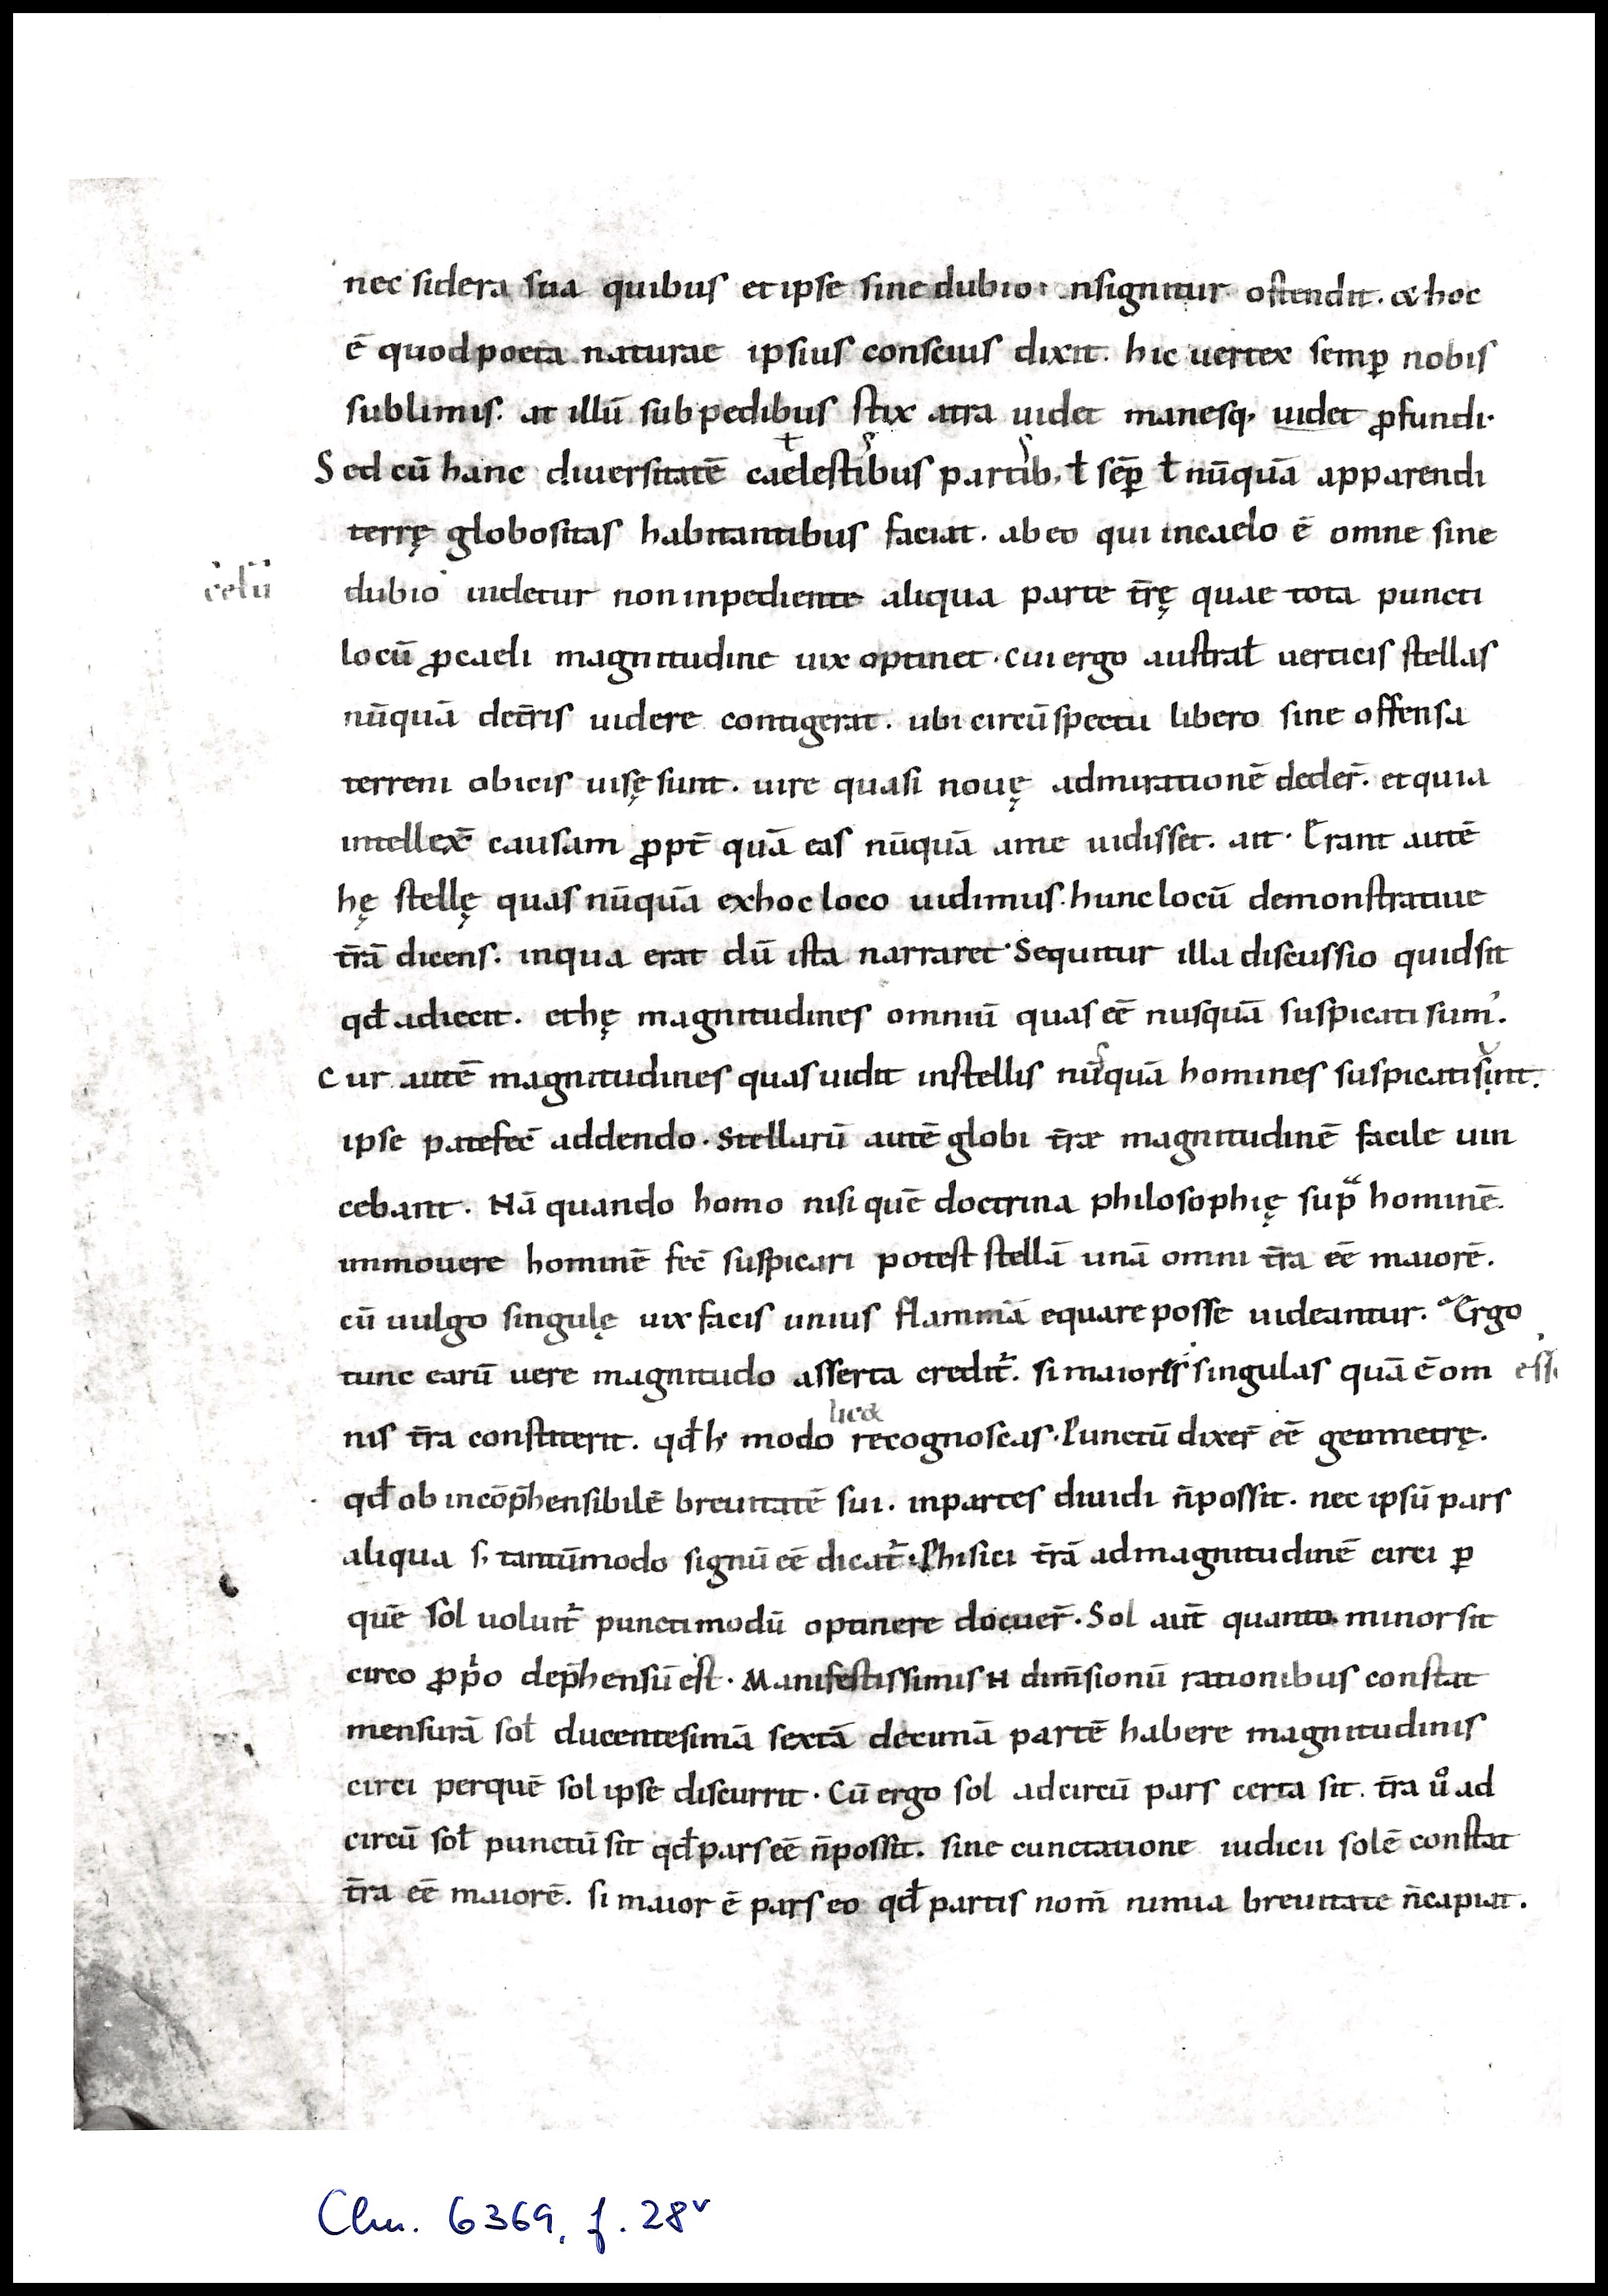 nec sidera sua quibus et ipse sine dubio insignitur ostendit. & hoc
ē quod poeta naturae ipsius conscius dixit. hic uertex semꝑ nobis
sublimis. at illū sub pedibus stix atra uidet manesq; uidet ꝓfundi.
Sed cū hanc diuersitatē caelestibus partib; ł sēꝑ ł nūquā apparendi
terrę globositas habitantibus faciat. ab eo qui in caelo ē omne sine
celū
dubio uidetur non inpediente aliqua parte tr̄ę quae tota puncti
locū ꝓ caeli magnitudine uix optinet. cui ergo austral̄ uerticis stellas
nūquā de tr̄is uidere contigerat. ubi circūspectu libero sine offensa
terreni obicis uisę sunt. iure quasi nouę admirationē deder̄. et quia
intellex̄ causam ꝓpt̄ quā eas nūquā ante uidisset. ait. Erant autē
hę stellę quas nūquā ex hoc loco uidimus. hunc locū demonstratiue
tr̄ā dicens. in qua erat dū ista narraret. Sequitur illa discussio quid sit
qd̄ adiecit. et hę magnitudines omniū quas eē nusquā suspicati sum'.
Cur autē magnitudines quas uidit in stellis nūquā homines suspicati sint.
ipse patefec̄ addendo. Stellarū autē globi tr̄æ magnitudinē facile uin
cebant. Nā quando homo nisi quē doctrina philosophię sup̄ hominē.
immo uere hominē fec̄ suspicari potest stellā unā omni tr̄a eē maiorē.
cū uulgo singulę uix facis unius flammā equare posse uideantur. Ergo
tunc earū uere magnitudo asserta credit̄. si maioris singulas quā ē om esse
lic&
nis tr̄a constiterit. qd̄ h' modo recognoscas. Punctū dixer̄ eē geometrę.
qd̄ ob incōp̄hensibilē breuitatē sui. in partes diuidi n̄ possit. nec ipsū pars
aliqua s; tantūmodo signū eē dicat̄. Phisici tr̄ā ad magnitudinē circi ꝑ
quē sol uoluit̄ puncti modū optinere docuer̄. Sol aut̄ quanto minor sit
circo ꝓp̍o dep̄hensū est. Manifestissimis N dim̄sionū rationibus constat
mensurā sol̄ ducentesimā sextā decimā partē habere magnitudinis
circi per quē sol ipse discurrit. Cū ergo sol ad circū pars certa sit. tr̄a ů ad
circū sol̄ punctū sit qd̄ pars eē n̄ possit. sine cunctatione iudicii solē constat
tr̄a eē maiorē. si maior ē pars eo qd̄ partis nom̄ nimia breuitate n̄ capiat.
Clm. 6369, f. 28ᵛ